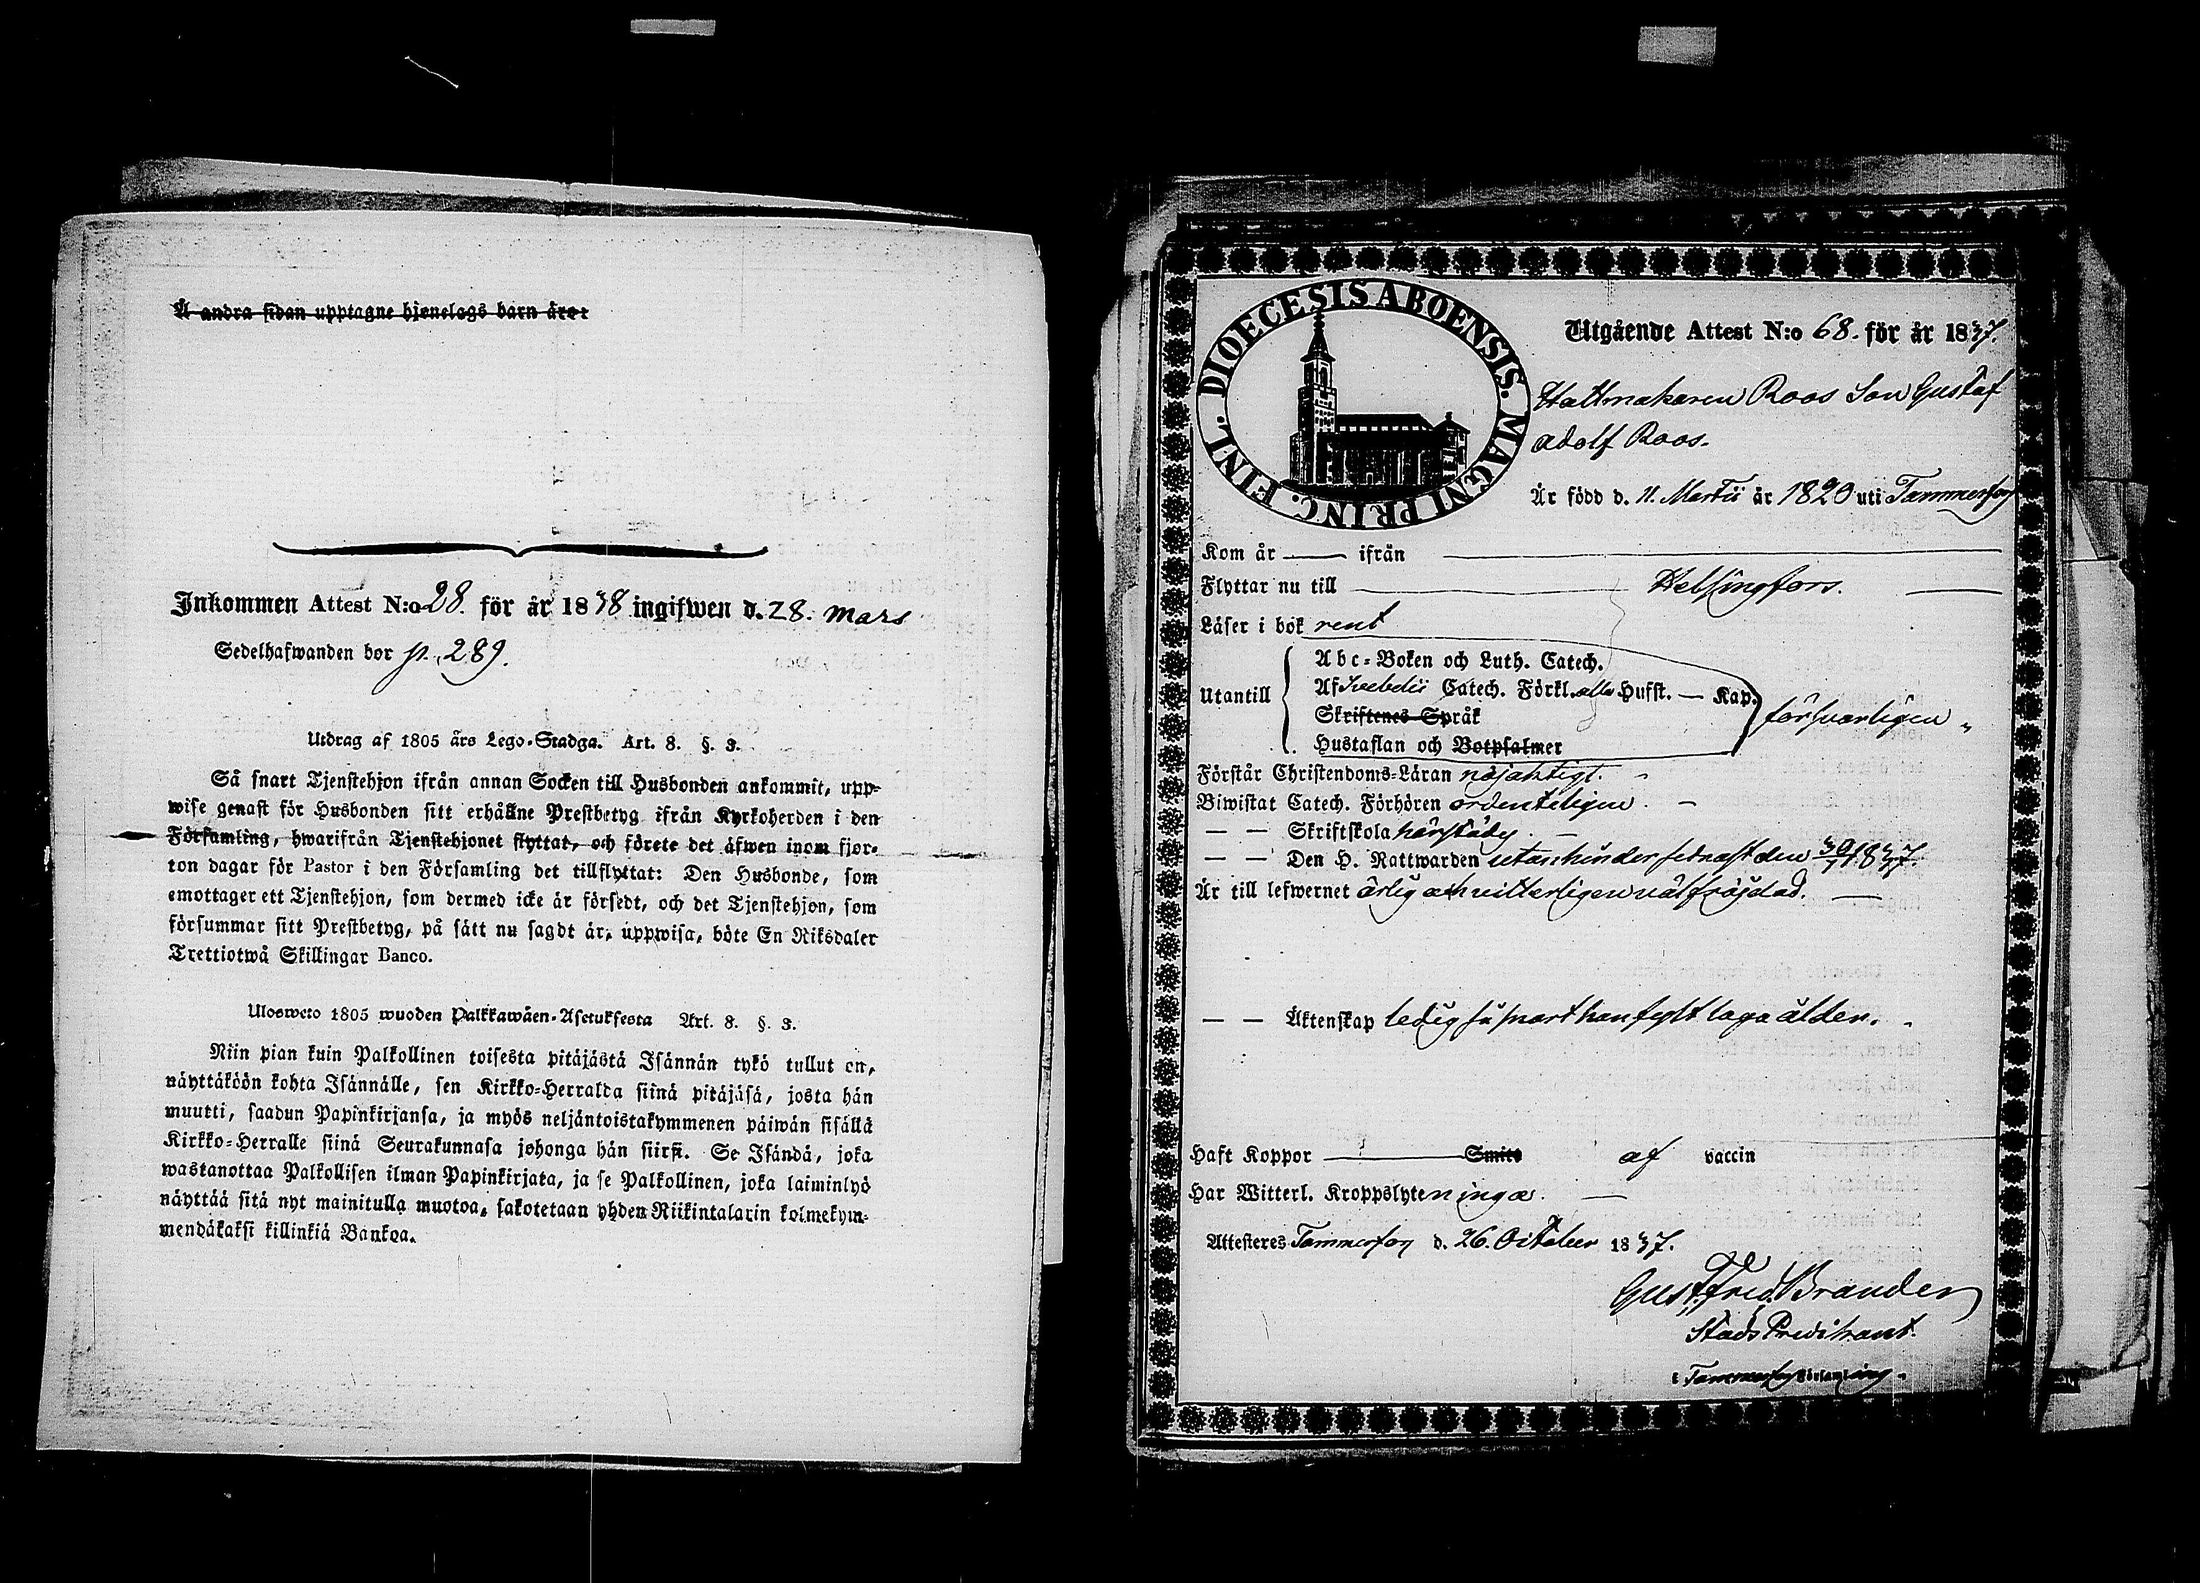 Å andra sidan upptagne hjonelags barn äro:
Inkommen Attest N:o 28. för år 1838 ingifwen d. 28. Mars
Sedelhafwanden bor p. 289.
Utdrag af 1805 års Lego-Stadga. Art. 8. §. 3.
Så snart Tjenstehjon ifrån annan Socken till Husbonden ankommit, upp-
wise genast för Husbonden sitt erhållne Prestbetyg ifrån Kyrkoherden i den
Församling, hwarifrån Tjenstehjonet flyttat, och förete det äfwen inom fjor-
ton dagar för Pastor i den Församling det tillflyttat: Den Husbonde, som
emottager ett Tjenstehjon, som dermed icke är försedt, och det Tjenstehjon, som
försummar sitt Prestbetyg, på sätt nu sagdt är, uppwisa, böte En Riksdaler
Trettiotwå Skillingar Banco.
Ulosweto 1805 wuoden Palkkawäen-Asetuksesta Art. 8. §. 3.
Niin pian kuin Palkollinen toisesta pitäjästä Isännän tykö tullut on,
näyttäköön kohta Isännälle, sen Kirkko-Herralda siinä pitäjäsä, josta hän
muutti, saadun Papinkirjansa, ja myös neljäntoistakymmenen päiwän sisällä
Kirkko-Herralle siinä Seurakunnasa johonga hän siirsi. Se Isändä, joka
wastanottaa Palkollisen ilman Papinkirjata, ja se Palkollinen, joka laiminlyö
näyttää sitä nyt mainitulla muotoa, sakotetaan yhden Riikintalarin kolmekym-
mendäkaksi killinkiä Bankoa.
DIOECESIS ABOENSIS. MAGNI PRINC. FINL.
Utgående Attest N:o 68. för år 1837.
Hattmakaren Roos Son Gustaf
Adolf Roos.
Är född d. 11. Martii år 1820 uti Tammerfors
Kom år — ifrån —
Flyttar nu till — Helsingfors. —
Läser i bok rent
Utantill
Abc-Boken och Luth. Catech.
Af Svebelii Catech. Förkl. alla Hufst. — Kap.
Skriftenes Språk
Hustaflan och Botpsalmer
försvarligen
Förstår Christendoms-Läran nöjaktigt.
Biwistat Catech. Förhören ordenteligen. —
— — Skriftskola härstädes. —
— — Den H. Nattwarden utan hinder sednast den 30/7 1837.
Är till lefwernet ärlig och vitterligen välfrägdad. —
— — Äktenskap ledig så snart han fyllt laga ålder.
Haft Koppor — Smitt af vaccin
Har Witterl. Kroppslyten inga. —
Attesteres Tammerfors d. 26. October 1837.
Gust. Fred. Brander
Stads Predikant.
i Tammerfors Församling.